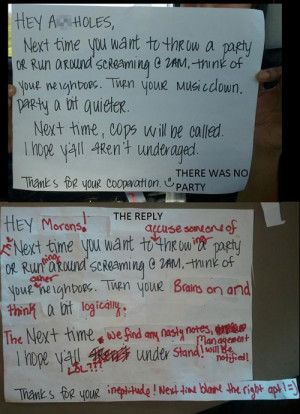 HEY A  HOLES,
Next time you want to throw a party
OR Run around screaming @ 2AM, think of
your neighbors. Turn your music down.
party a bit quieter.
Next time, cops will be called.
I hope y'all aren't underaged.
Thanks for your cooperation.
THERE WAS NO
PARTY
THE REPLY
HEY Morons!
accuse someone of
The Next time you want to throwing a party
OR Running around screaming @ 2AM, think of
your other neighbors. Turn your Brains on and
think a bit logically.
The Next time, we find any nasty notes,
Management
I hope y'all understand! will be
notified!
LOL???
Thanks for your ineptitude! Next time blame the right apt! =)